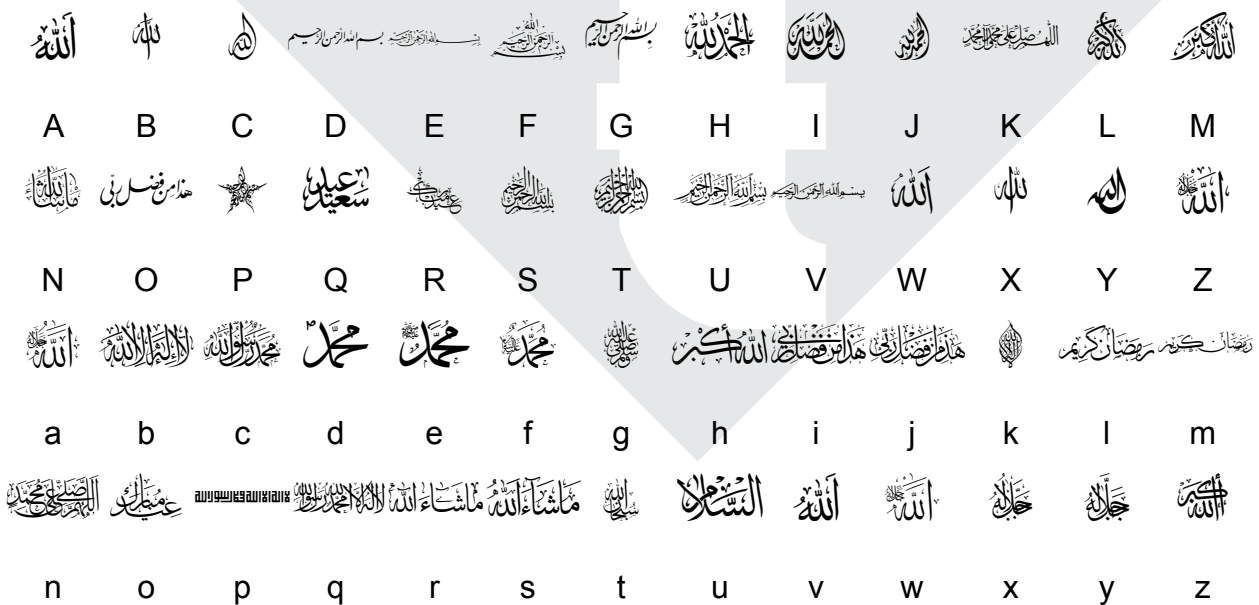 الله الله الله بسم الله الرحمن الرحيم بسم الله الرحمن الرحيم بسم الله الرحمن الرحيم بسم الله الرحمن الرحيم الحمد لله الحمد لله الحمد لله اللهم صل على محمد وآل محمد الله أكبر الله أكبر
A B C D E F G H I J K L M
ما شاء الله هذا من فضل ربي عيد سعيد عيد مبارك بسم الله الرحمن الرحيم بسم الله الرحمن الرحيم بسم الله الرحمن الرحيم بسم الله الرحمن الرحيم الله الله الله الله جل جلاله
N O P Q R S T U V W X Y Z
الله جل جلاله لا إله إلا الله محمد رسول الله محمد محمد محمد صلى الله عليه وسلم الله أكبر هذا من فضل ربي هذا من فضل ربي رمضان كريم رمضان كريم
a b c d e f g h i j k l m
اللهم صل على محمد عيد مبارك لا إله إلا الله محمد رسول الله ما شاء الله ما شاء الله سبحان الله السلام الله الله جل جلاله جل جلاله جل جلاله الله أكبر
n o p q r s t u v w x y z